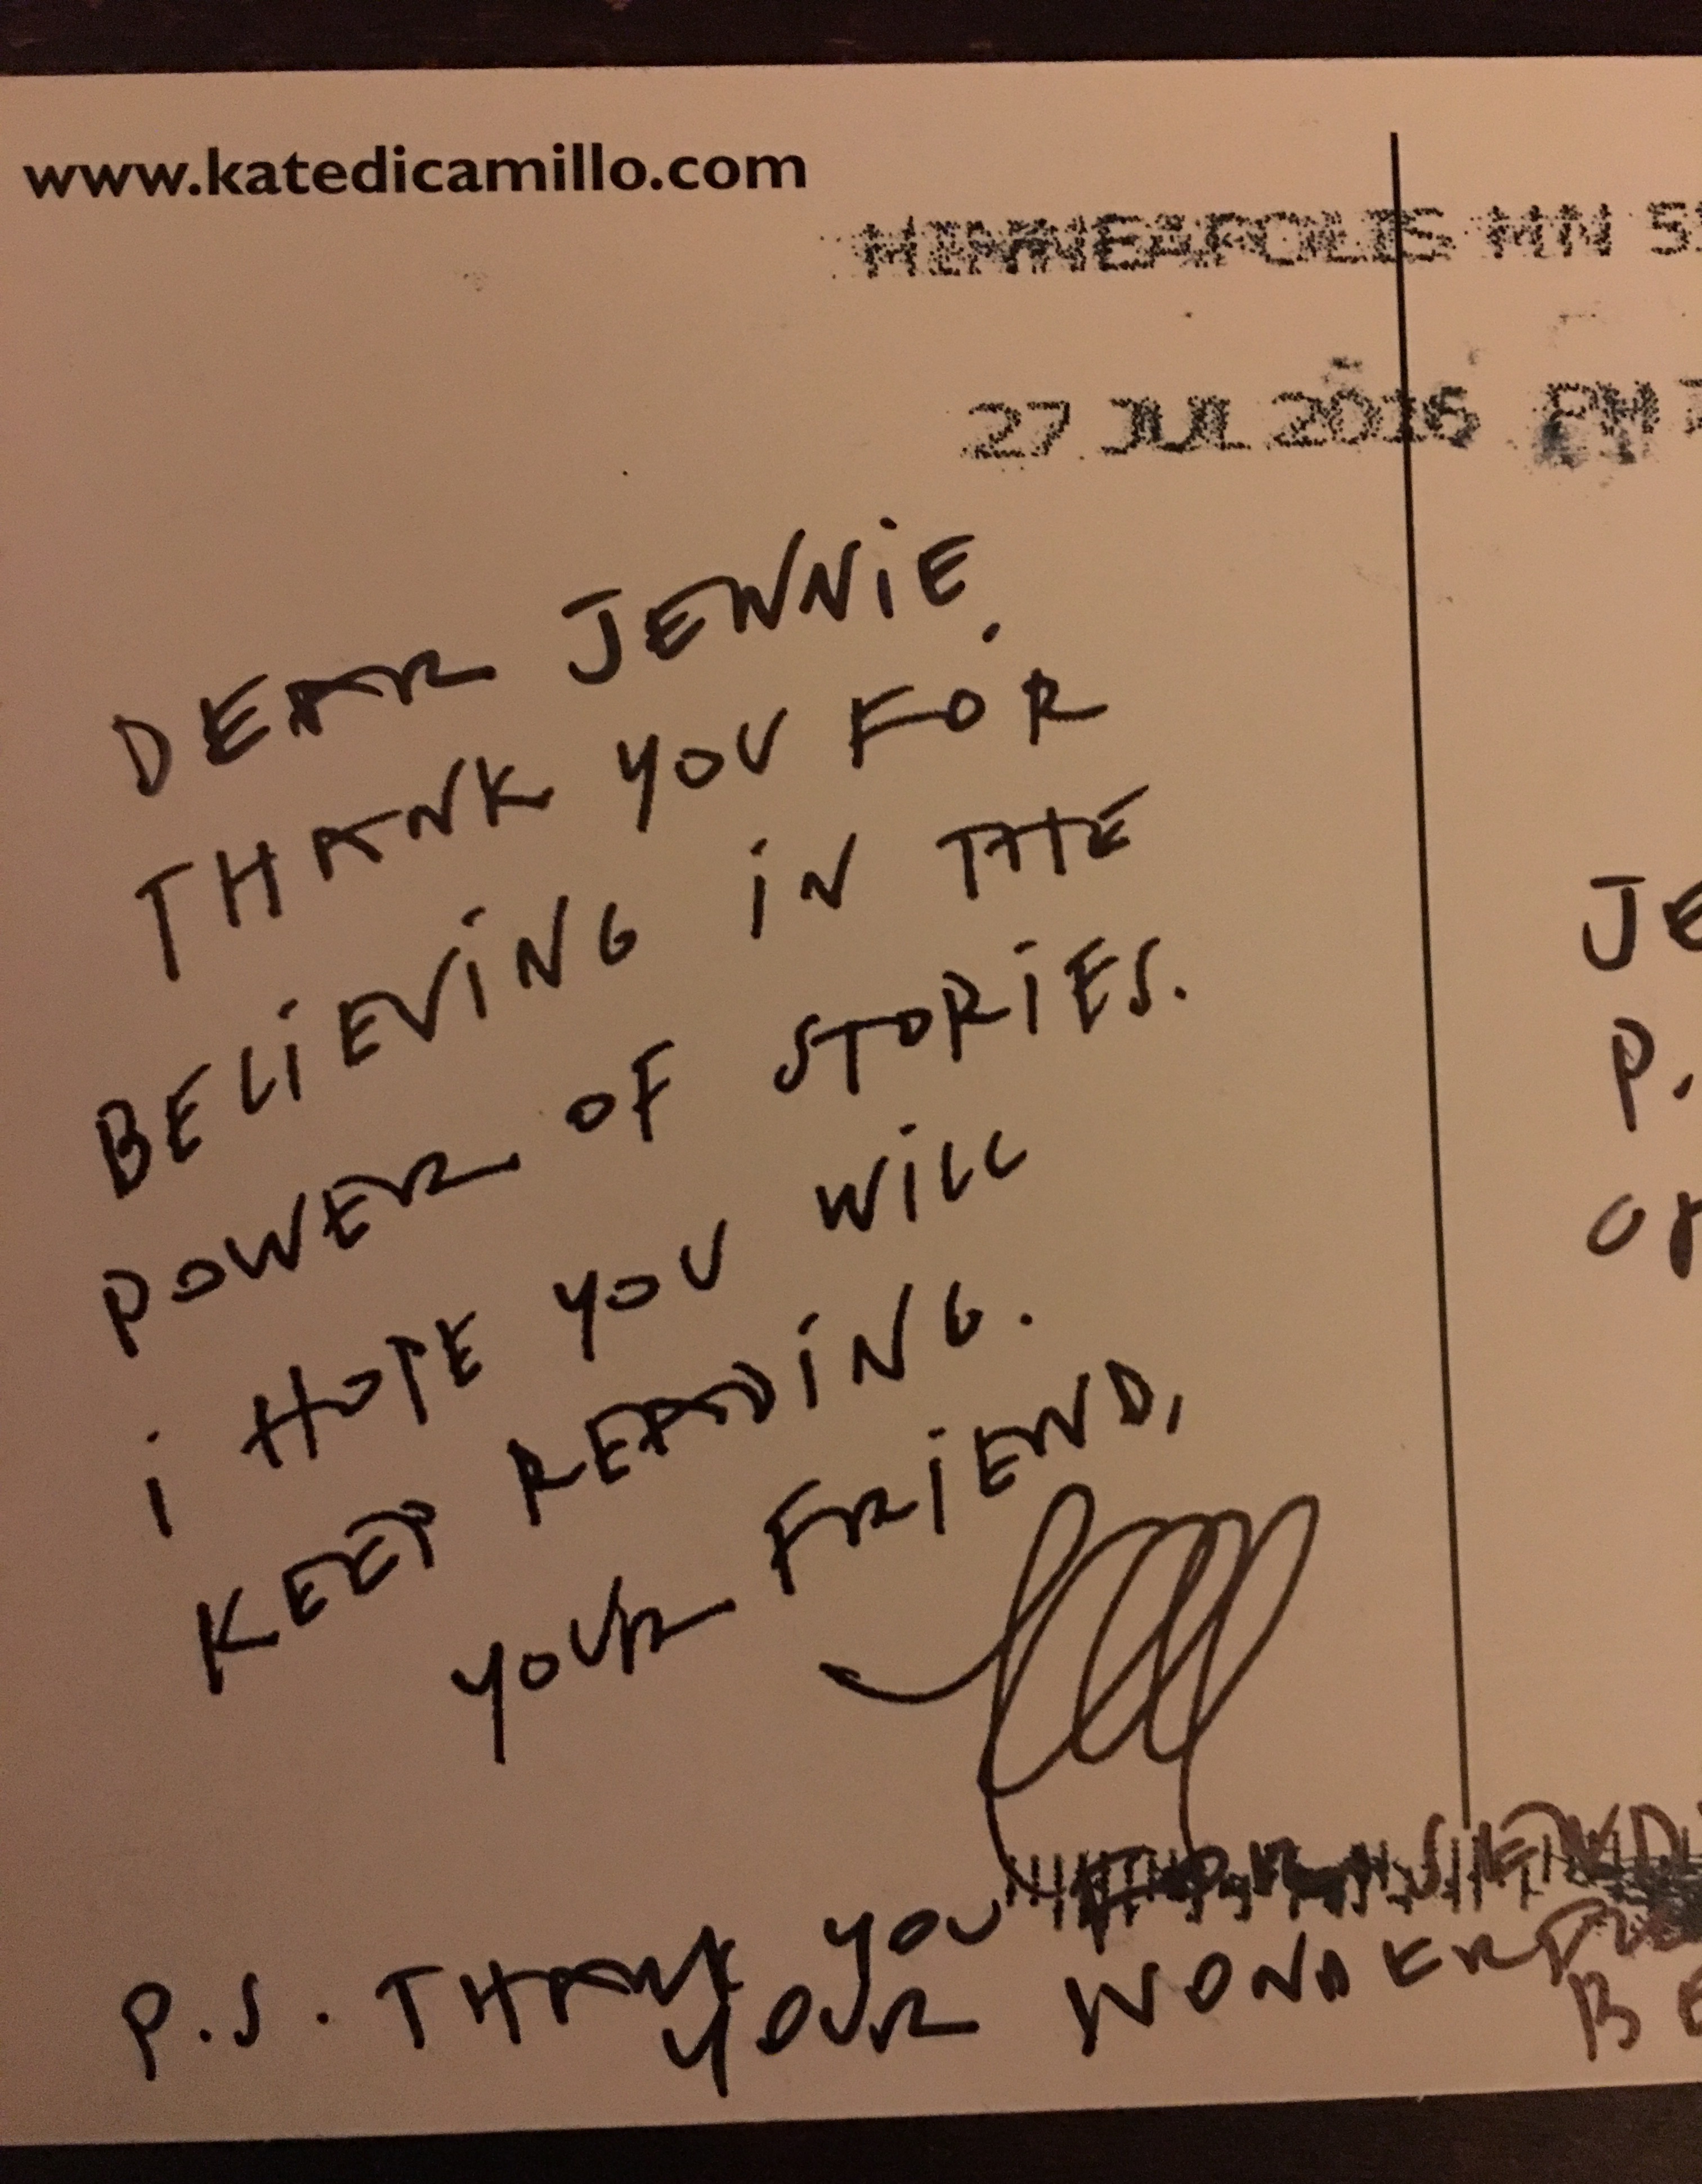 www.katedicamillo.com
MINNEAPOLIS MN 55
27 JUL 2016 PM
DEAR JENNIE,
THANK YOU FOR
BELIEVING IN THE
POWER OF STORIES.
i HOPE YOU WILL
KEEP READING.
YOUR FRIEND,
P.S. THANK YOU FOR SENDI
YOUR WONDERFUL
BE
JE
P.